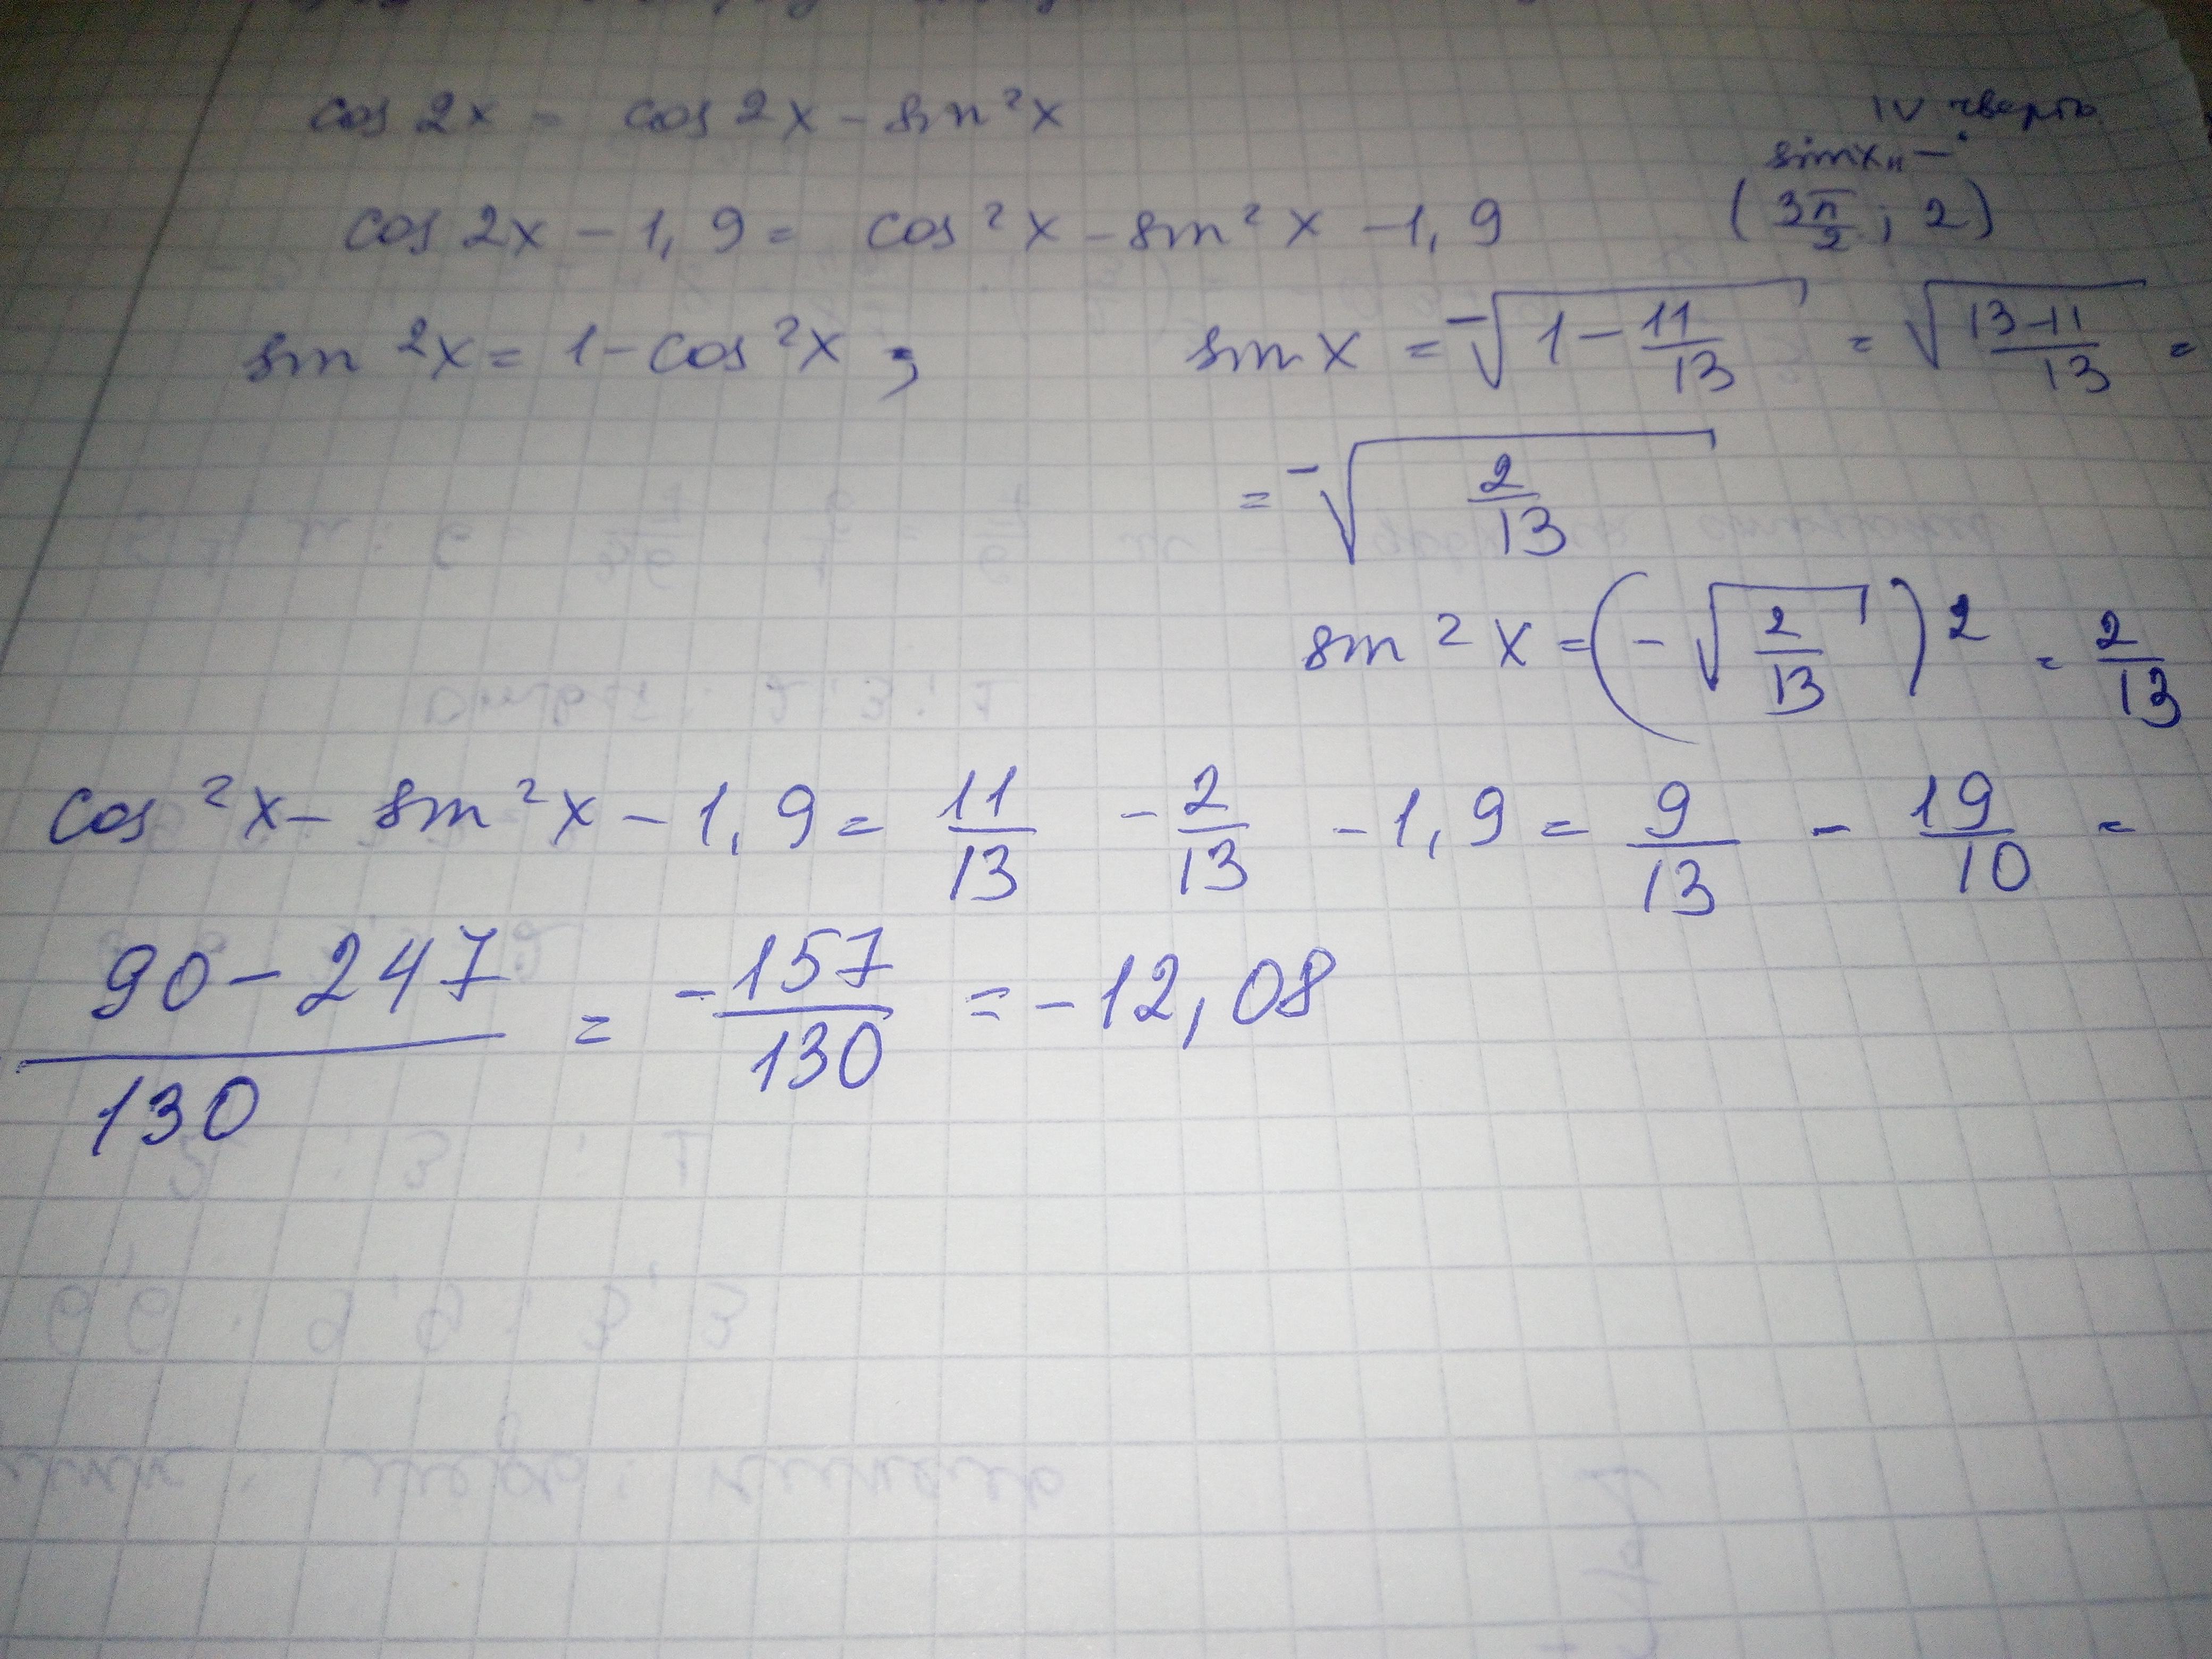 cos 2x = cos 2x - sin²x
IV чверть
sin x „-“
cos 2x - 1,9 = cos²x - sin²x - 1,9
(3π/2 ; 2)
sin²x = 1 - cos²x ;
sin x = -√(1 - 11/13) = √((13-11)/13) =
= -√(2/13)
sin²x = (-√(2/13))² = 2/13
cos²x - sin²x - 1,9 = 11/13 - 2/13 - 1,9 = 9/13 - 19/10 =
(90 - 247)/130 = -157/130 = -12,08